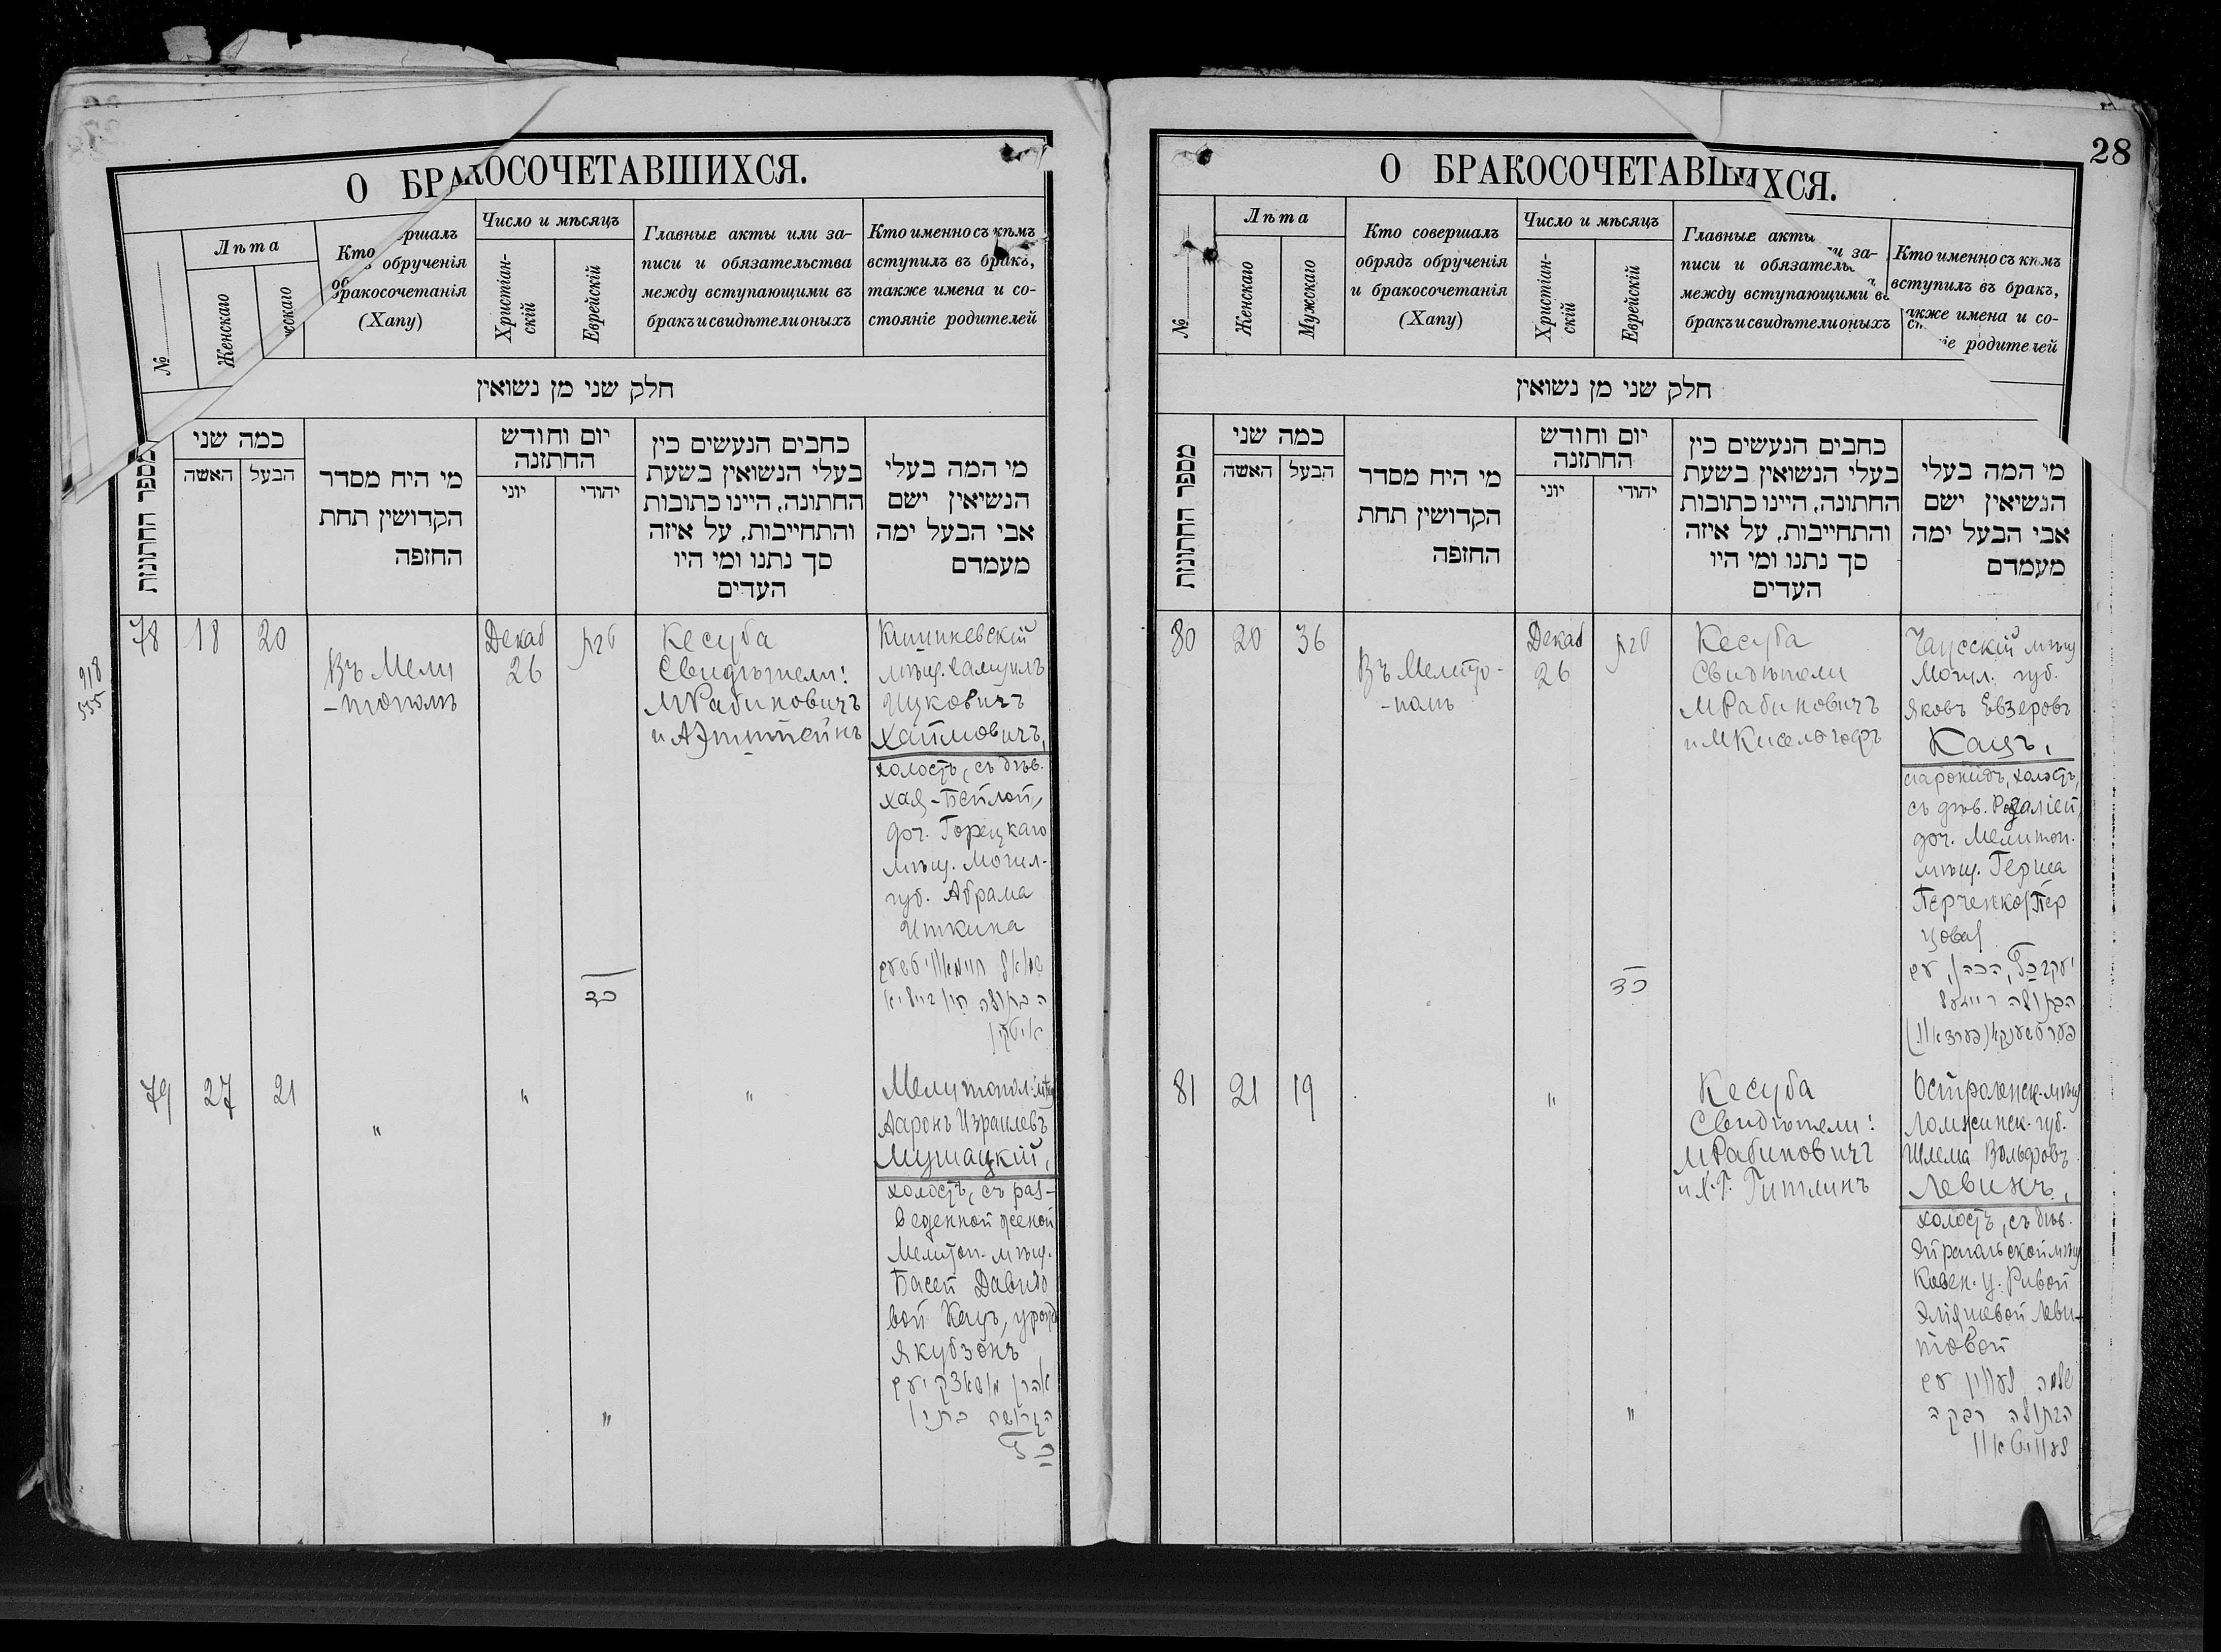 28
О БРАКОСОЧЕТАВШИХСЯ.
№
Лѣта
Женскаго
жскаго
Кто
ршалъ
обрученія
бракосочетанія
(Хапу)
Число и мѣсяцъ
Христіан-
скій
Еврейскій
Главные акты или за-
писи и обязательства
между вступающими въ
бракъ и свидѣтели оныхъ
Кто именно съ кѣмъ
вступилъ въ бракъ,
также имена и со-
стояніе родителей
חלק שני מן נשואין
מספר החתונות
כמה שני
האשה
הבעל
מי היח מסדר
הקדושין תחת
החזפה
יום וחודש
החתזנה
יוני
יהודי
כחבים הנעשים כין
בעלי הנשואין בשעת
החתונה, היינו כתובות
והתחייבות, על איזה
סך נתנו ומי היו
העדים
מי המה בעלי
הנשיאין ישם
אבי הבעל ימה
מעמדם
78
18
20
Въ Мели
-тополѣ
Декаб
26
כד
Кесуба
Свидѣтели:
МРабиновичъ
и АЭпштейнъ
Кишиневскій
мѣщ. Самуилъ
Ицковичъ
Хаймовичъ,
холостъ, съ дѣв.
Хая-Бейлой,
доч. Горецкаго
мѣщ. Могил-
губ. Абрама
Иткина
הבתולה
איטקין
918
555
79
27
21
"
"
"
"
Мелитопол. мѣщ
Ааронъ Израилевъ
Мушацкій,
холостъ, съ раз-
веденной женой
Мелитоп. мѣщ.
Басей Давидо
вой Кацъ, урожд
Якубзонъ
אהרן
הגרושה
כ"צ
О БРАКОСОЧЕТАВШИХСЯ.
№
Лѣта
Женскаго
Мужскаго
Кто совершалъ
обрядъ обрученія
и бракосочетанія
(Хапу)
Число и мѣсяцъ
Христіан-
скій
Еврейскій
Главные акты
и за-
писи и обязательс
между вступающими въ
бракъ и свидѣтели оныхъ
Кто именно съ кѣмъ
вступилъ въ бракъ,
акже имена и со-
іе родителей
חלק שני מן נשואין
מספר החתונות
כמה שני
האשה
הבעל
מי היח מסדר
הקדושין תחת
החזפה
יום וחודש
החתזנה
יוני
יהודי
כחבים הנעשים כין
בעלי הנשואין בשעת
החתונה, היינו כתובות
והתחייבות, על איזה
סך נתנו ומי היו
העדים
מי המה בעלי
הנשיאין ישם
אבי הבעל ימה
מעמדם
80
20
36
Въ Мелито-
-полѣ
Декаб
26
כד
Кесуба
Свидѣтели
МРабиновичъ
и МКиселгофъ
Чаусскій мѣщ
Могил. губ.
Яковъ Евзеровъ
Кацъ,
ааронидъ, холостъ,
съ дѣв. Розаліей,
доч. Мелитоп.
мѣщ. Герша
Перченко (Пер
цова)
יעקב כ"ץ, הכהן, עם
הבתולה רייזעל
81
21
19
"
"
Кесуба
Свидѣтели:
МРабиновичъ
и Х.Г. Гитлинъ
Остроленск. мѣщ
Ломжинск. губ.
Шлема Вольфовъ
Левинъ,
холостъ, съ дѣв.
Эйрагольской мѣщ
Ковен. у. Ривой
Эліяшевой Леви-
товой
שלמה לעווין עם
הבתולה רבקה
לעוויטאוו